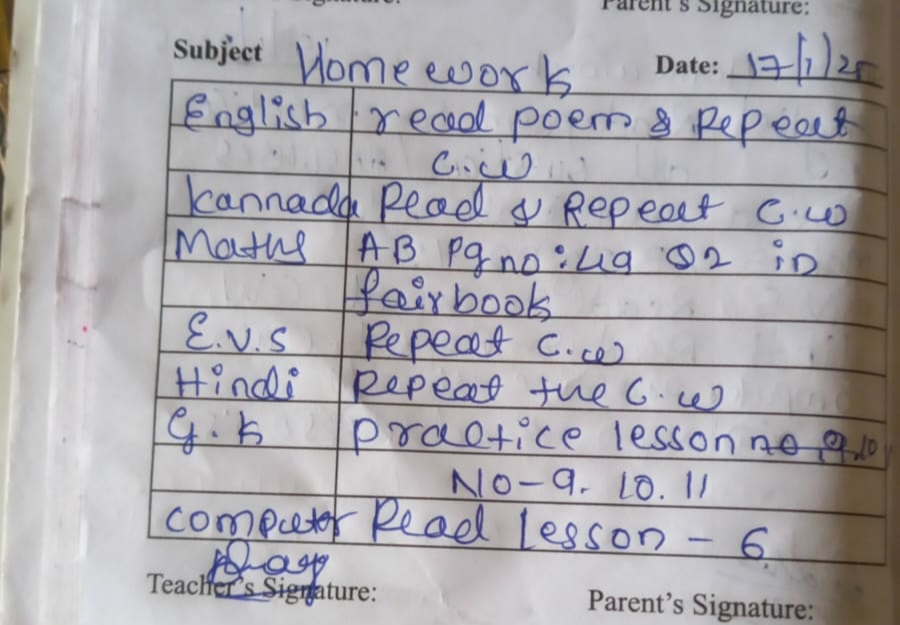 Parent's Signature:
Subject Homework Date: 17/1/25
English read poem & Repeat
C.W
Kannada Read & Repeat C.W
Maths AB Pg no: 49 Q2 in
fairbook
E.V.S Repeat C.W
Hindi Repeat the C.W
G.K practice lesson no 9.10
NO-9. 10. 11
computer Read Lesson - 6
Teacher's Signature: Parent's Signature: